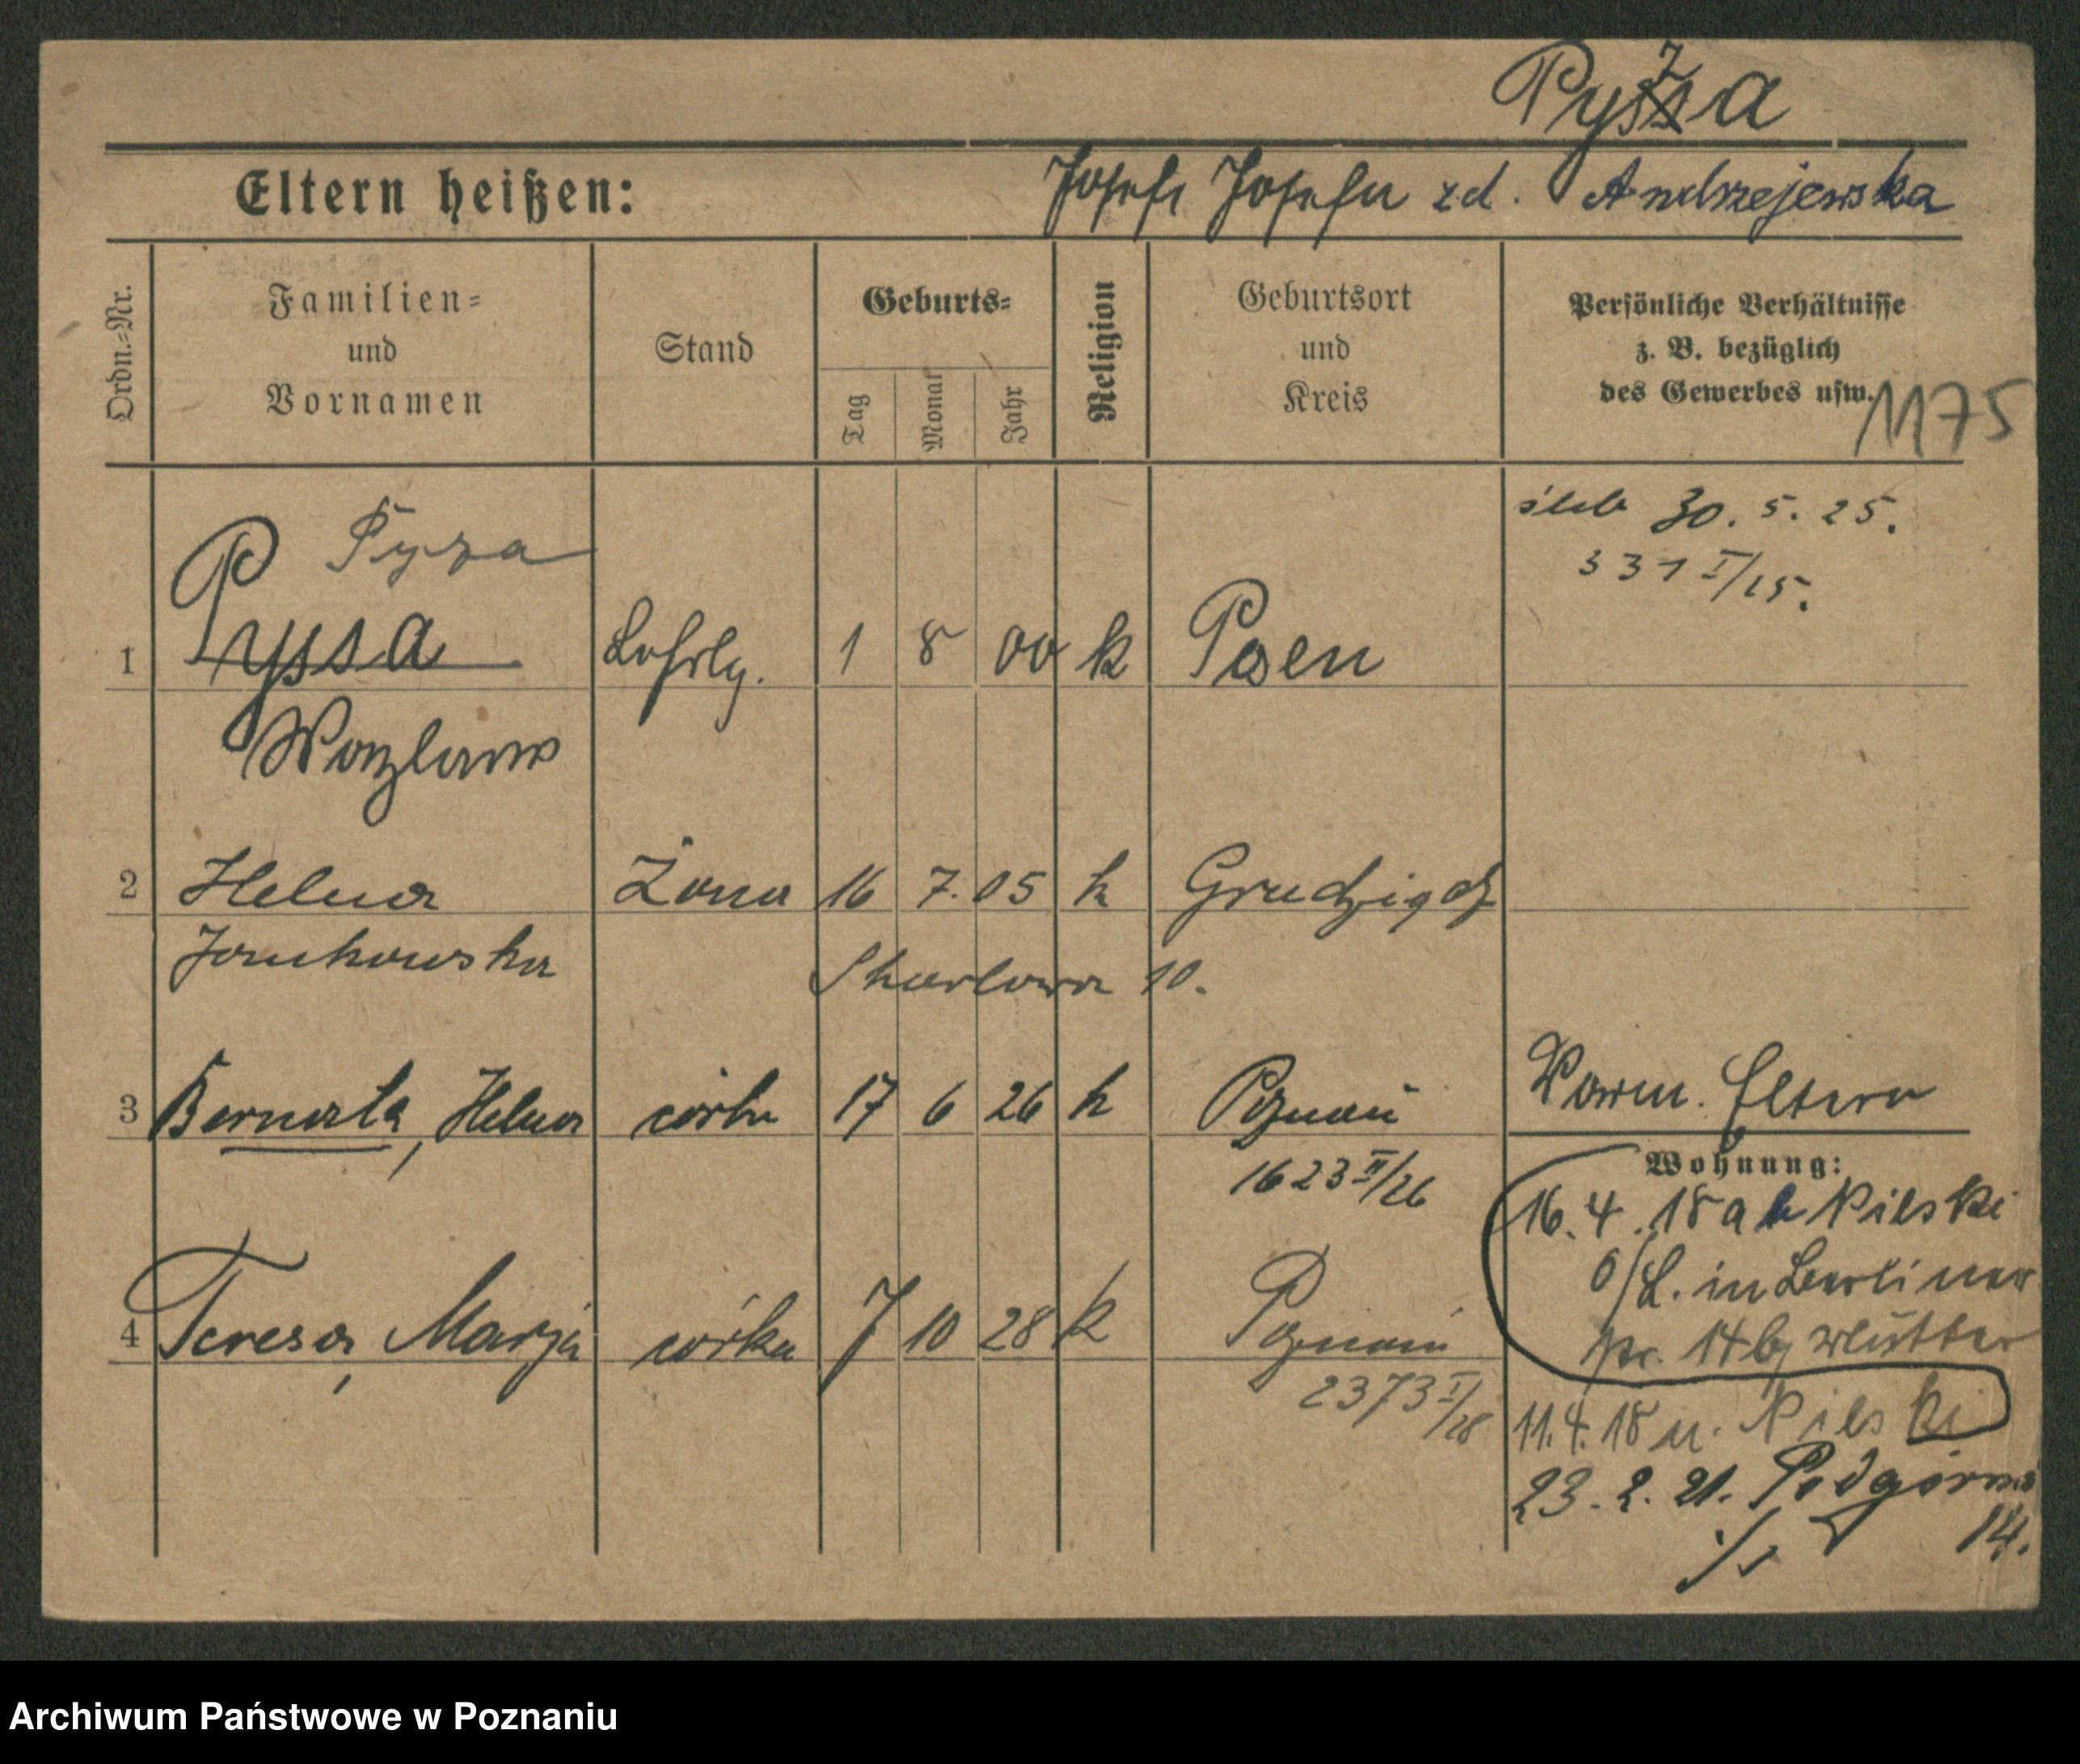 Pyza
Eltern heißen: Josef, Josefa zd. Andrzejewska
Ordn.-Nr.
Familien-
und
Vornamen
Stand
Geburts-
Tag
Monat
Jahr
Religion
Geburtsort
und
Kreis
Persönliche Verhältnisse
z. B. bezüglich
des Gewerbes usw.
1175
ślub 30. 5. 25.
331 I/25.
Pyza
1 Pyssa Lehrlg. 1 8 00 k Posen
Wazlaw
2 Helena Żona 16 7. 05 k Grudziądz
Jankowska Skarbowa 10.
3 Bernarta, Helena córka 17 6 26 k Poznań
1623 II/26
Vorm. Eltern
Wohnung:
16. 4. 18 ab Pilski
O/L. in Berliner
str. 14 b Mutter
11. 4. 18 u. Pilski
23. 2. 21. Podgórna
14.
4 Teresa, Marja córka 7 10 28 k Poznań
2373 I/28
Archiwum Państwowe w Poznaniu